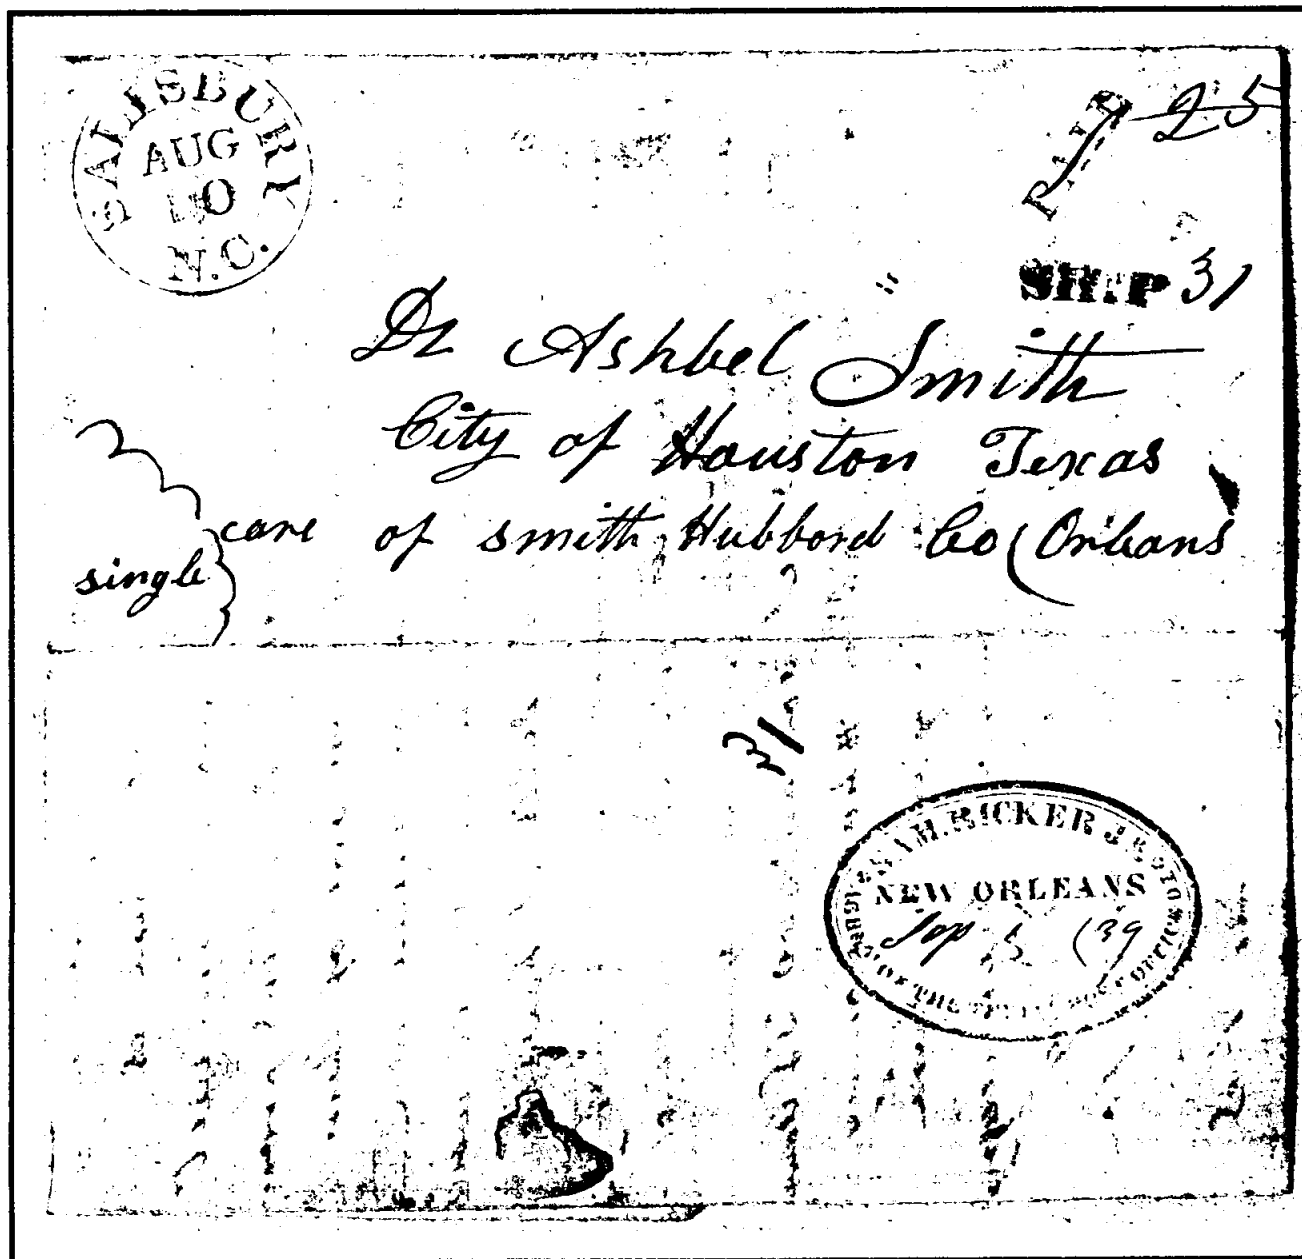 SALISBURY
AUG
10
N.C.
PAID 25
SHIP 31
Dr Ashbel Smith
City of Houston Texas
care of smith Hubbard Co (Orleans
single
31
SAM. RICKER JR.
NEW ORLEANS
Sep 5 (39
AGENT OF THE TEXIAN POST OFFICE